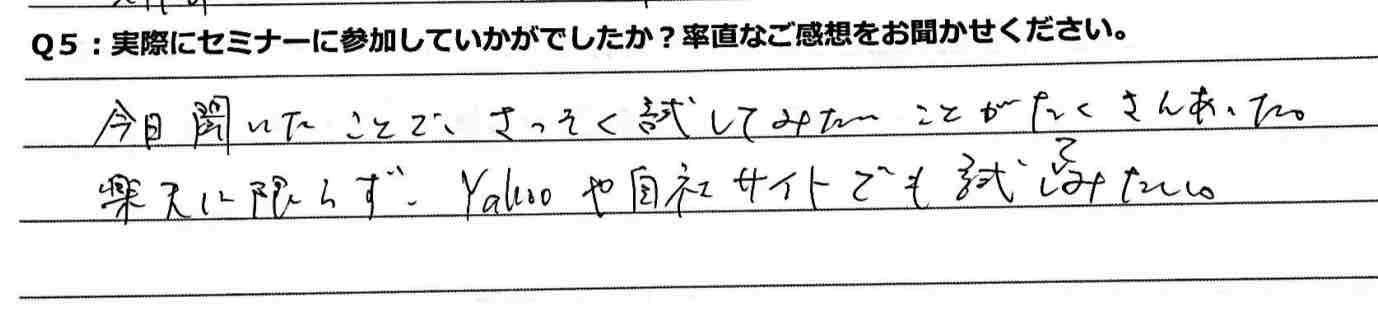 Q5：実際にセミナーに参加していかがでしたか？率直なご感想をお聞かせください。
今日聞いたことで、さっそく試してみたいことがたくさんあった。
楽天に限らず、Yahooや自社サイトでも試してみたい。